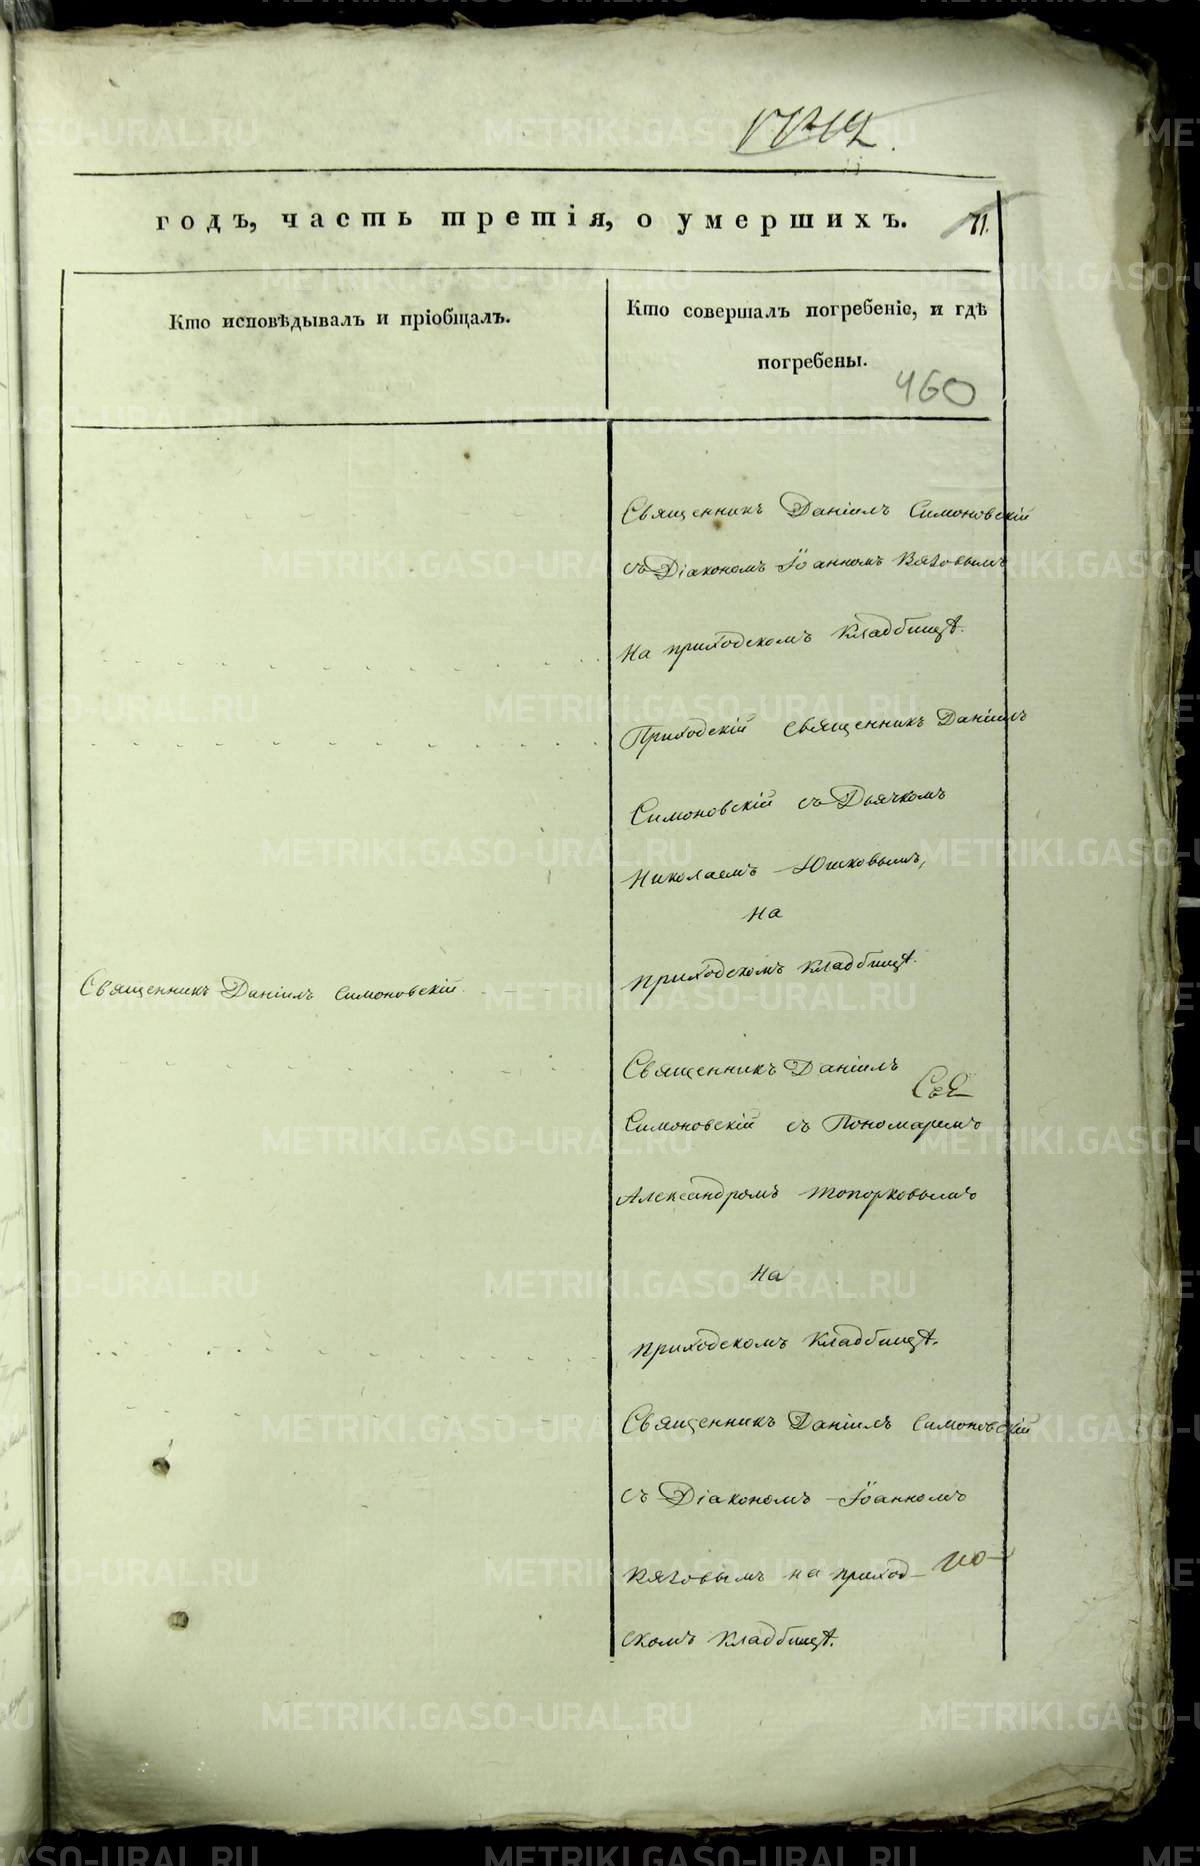 годъ, часть третія, о умершихъ.
71.
Кто исповѣдывалъ и пріобщалъ.
Кто совершалъ погребеніе, и гдѣ
погребены.
460
Священникъ Даніилъ Симоновскій
съ Діакономъ Іоанномъ Вяговымъ
на приходскомъ кладбищѣ.
Приходскій священникъ Даніилъ
Симоновскій съ Дьячкомъ
Николаемъ Юшковымъ,
на
приходскомъ кладбищѣ.
Священникъ Даніилъ Симоновскій
Священникъ Даніилъ
Симоновскій съ Пономаремъ
Александромъ Топорковымъ
на
приходскомъ кладбищѣ.
Священникъ Даніилъ Симоновскій
съ Діакономъ Іоанномъ
на приход-
скомъ кладбищѣ.
METRIKI.GASO-URAL.RU